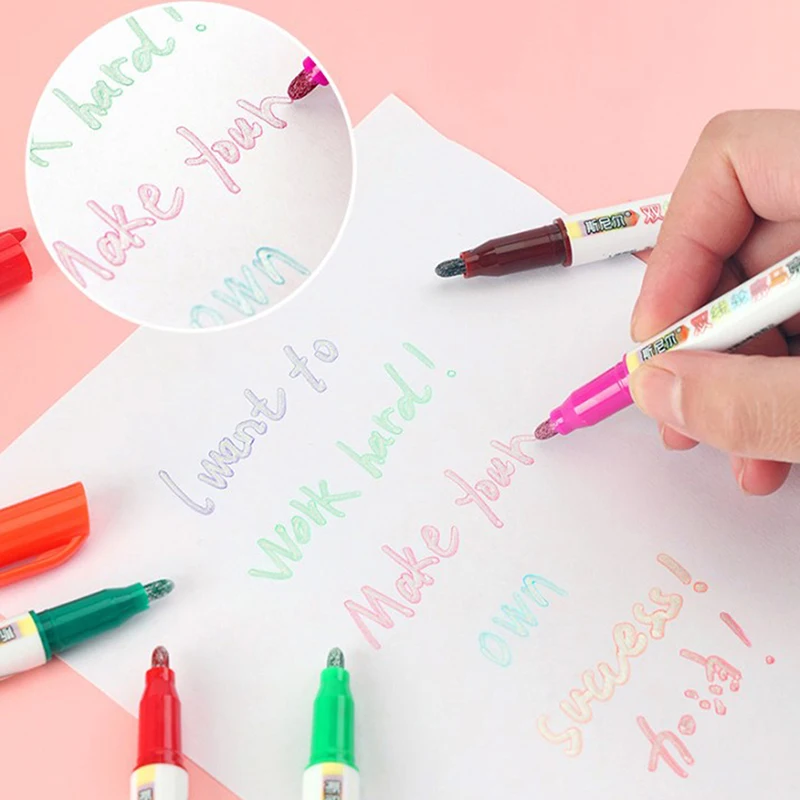 k hard!
Make your
own
斯尼尔
斯尼尔
I want to
Work hard!
Make your
own
Sucess!
加油!